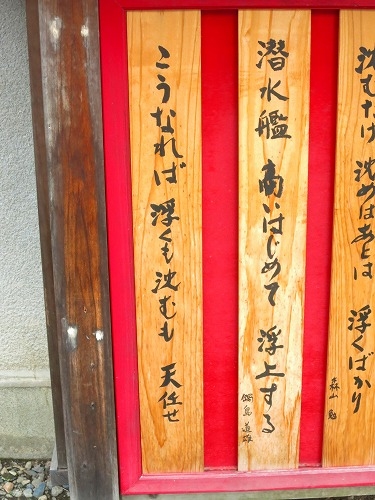 沈むだけ 沈めばあとは 浮くばかり
森山 勉
潜水艦 高いはじめて 浮上する
鍋島 道雄
こうなれば 浮くも沈むも 天任せ